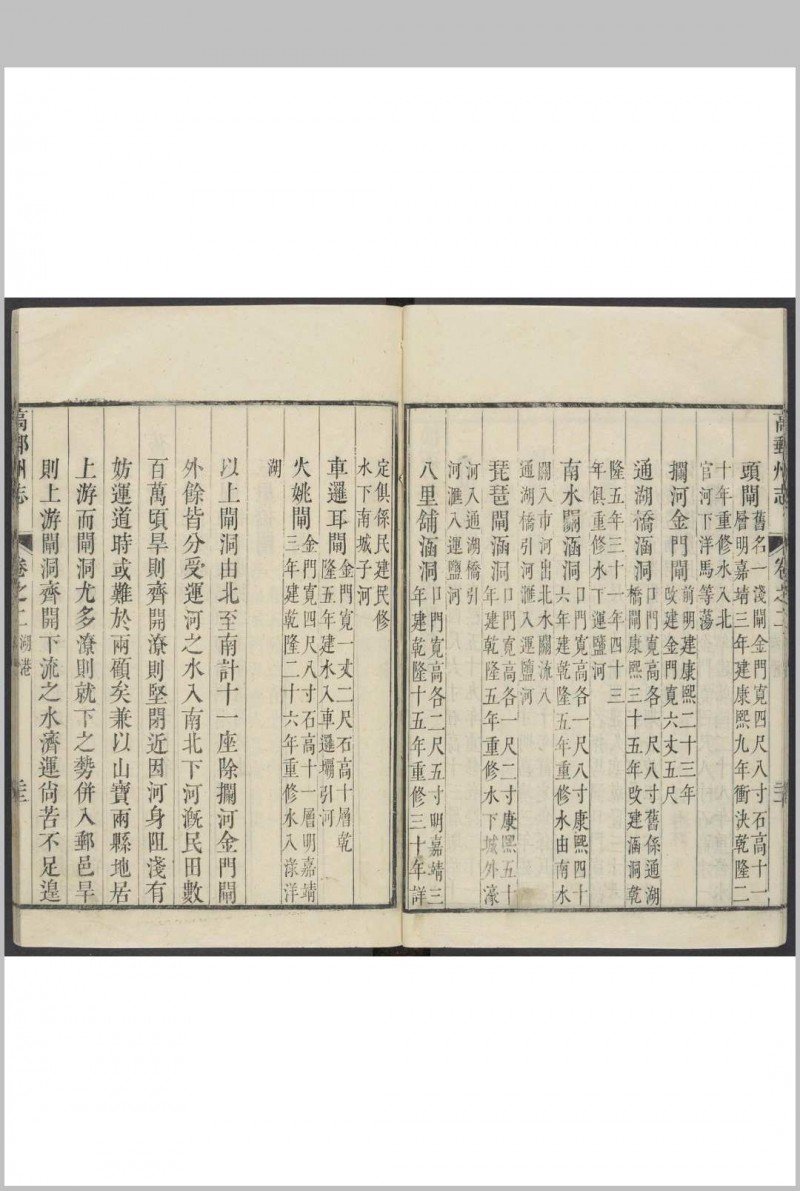 高郵州志
卷之二
頭閘 舊名一淺閘金門寬四尺八寸石高十一
層明嘉靖三年建康熙九年衝決乾隆二
十年重修水入北
官河下洋馬等蕩
攔河金門閘 前明建康熙二十三年
改建金門寬六丈五尺
通湖橋涵洞 口門寬高各一尺八寸舊係通湖
橋閘康熙三十五年改建涵洞乾
隆五年三十一年四十三
年俱重修水下運鹽河
南水關涵洞 口門寬高各一尺八寸康熙四十
六年建乾隆五年重修水由南水
關入市河出北水關流入
通湖橋引河匯入運鹽河
琵琶閘涵洞 口門寬高各一尺二寸康熙五十
年建乾隆五年重修水下城外濠
河入通湖橋引
河滙入運鹽河
八里舖涵洞 口門寬高各二尺五寸明嘉靖三
年建乾隆十五年重修三十年詳
定俱係民建民修
水下南城子河
車邏耳閘 金門寬一丈二尺石高十層乾
隆五年建水入車邏壩引河
火姚閘 金門寬四尺八寸石高十一層明嘉靖
三年建乾隆二十六年重修水入淥洋
湖
以上閘洞由北至南計十一座除攔河金門閘
外餘皆分受運河之水入南北下河漑民田數
百萬頃旱則齊開潦則堅閉近因河身阻淺有
妨運道時或難於兩顧矣兼以山寶兩縣地居
上游而閘洞尤多潦則就下之勢併入郵邑旱
則上游閘洞齊開下流之水濟運尙苦不足遑
高郵州志
卷之二 湖港